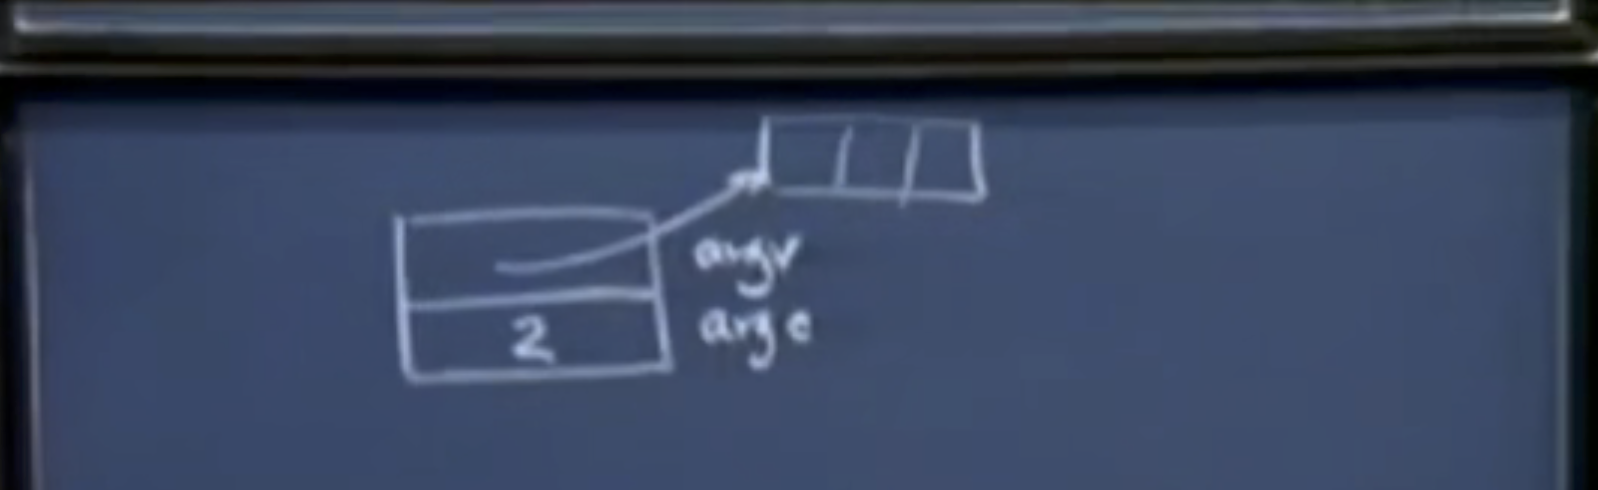 argv
2 argc